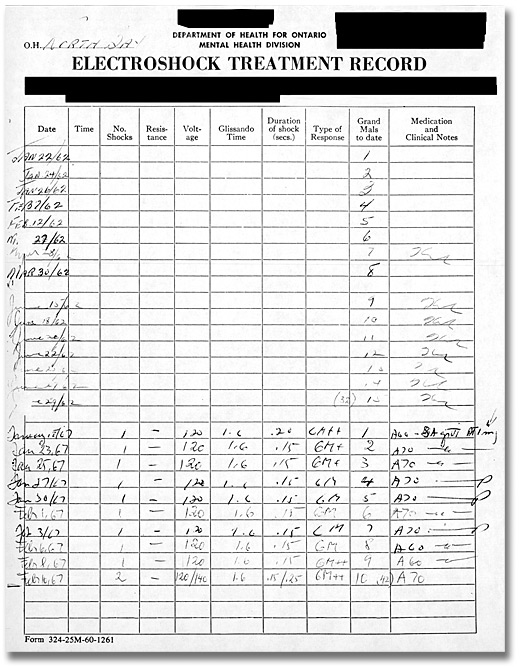 DEPARTMENT OF HEALTH FOR ONTARIO
MENTAL HEALTH DIVISION
O.H. NORTH BAY
ELECTROSHOCK TREATMENT RECORD
Date Time No. Shocks Resis- tance Volt- age Glissando Time Duration of shock (secs.) Type of Response Grand Mals to date Medication and Clinical Notes
JAN 22/62 1
JAN 24/62 2
JAN 26/62 3
4
FEB 12/62 5
27/62 6
7
MAR 30/62 8
9
June 18/62 10
June 20/62 11
June 22/62 12
13
14
29/62 (32) 15
January 67 1 – 120 1.6 .20 GM++ 1 A60
Jan 23,67 1 – 120 1.6 .15 GM++ 2 A70
Jan 25,67 1 – 120 1.6 .15 GM+ 3 A70
Jan 27/67 1 – 120 1.6 .15 GM 4 A70
Jan 30/67 1 – 120 1.6 .15 GM 5 A70
Feb 1,67 1 – 120 1.6 .15 GM 6 A70
Feb 3/67 1 – 120 1.6 .15 GM 7 A70
Feb 6,67 1 – 120 1.6 .15 GM 8 A60
Feb 8,67 1 – 120 1.6 .15 GM++ 9 A60
Feb 10,67 2 – 120/140 1.6 .15/.25 GM++ 10 (42) A70
Form 324-25M-60-1261